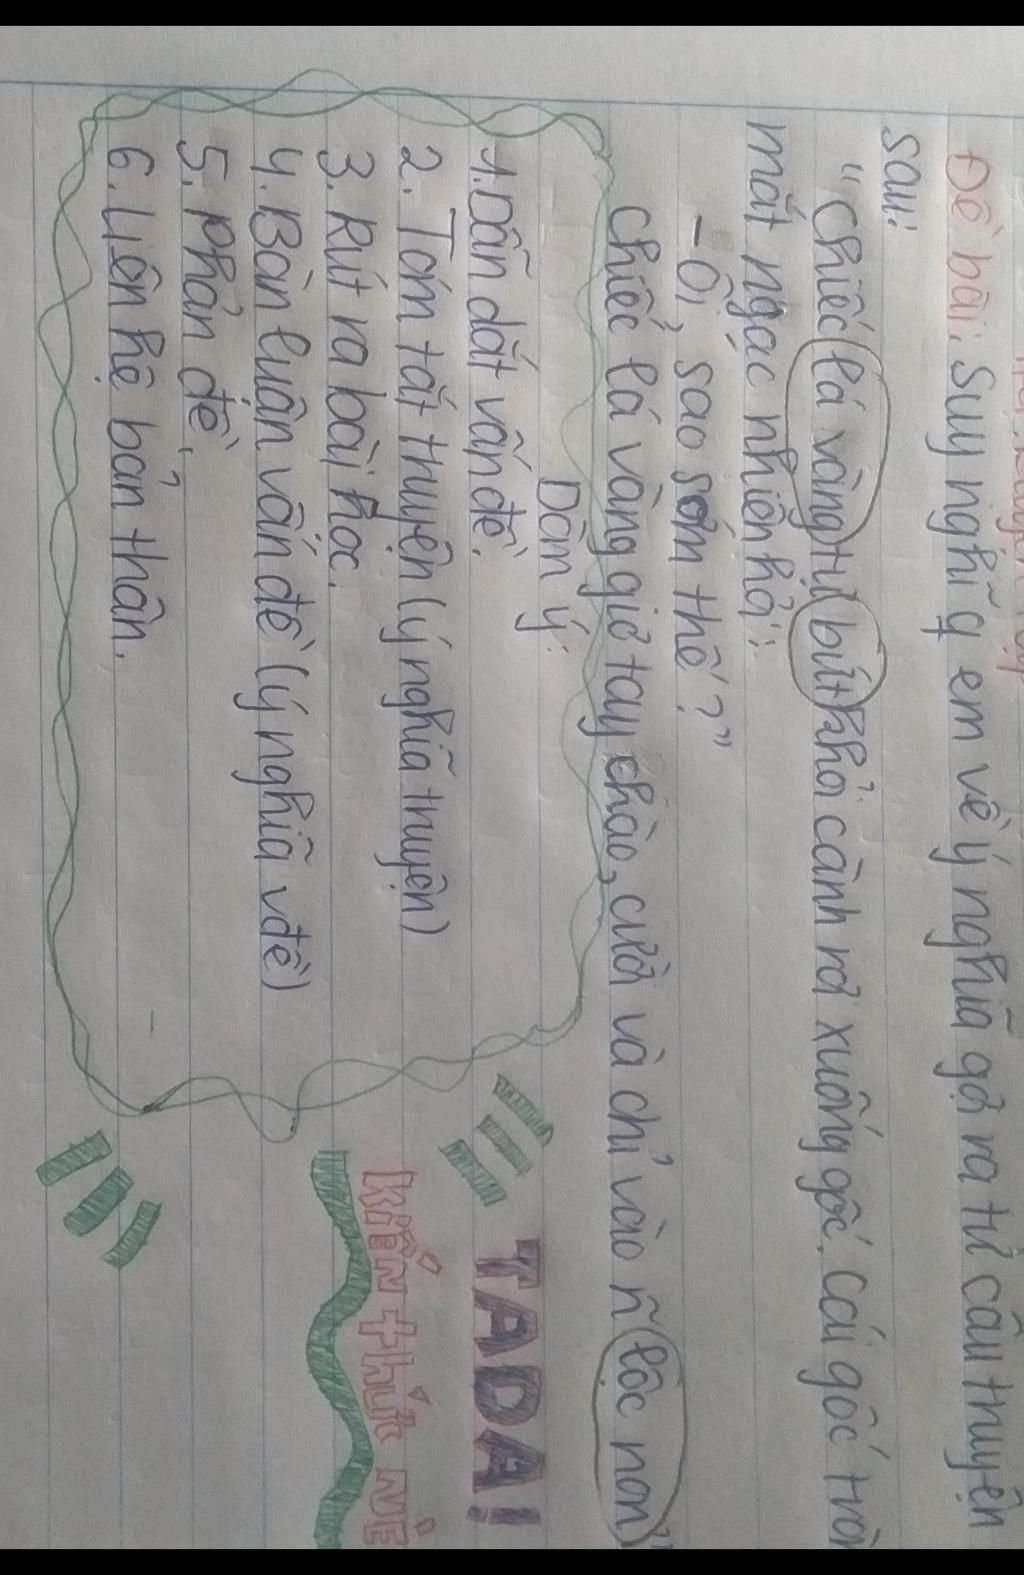 Đề bài: Suy nghĩ q em về ý nghĩa gợi ra từ câu truyện
sau:
"Chiếc lá vàng tự bứt khỏi cành rơi xuống gốc. Cái gốc tròn
mắt ngạc nhiên hỏi:
- Ôi, sao sớm thế?"
Chiếc lá vàng giơ tay chào, cười và chỉ vào n~ lộc non"
Dàn ý:
1. Dẫn dắt vấn đề.
2. Tóm tắt truyện (ý nghĩa truyện)
3. Rút ra bài học.
4. Bàn luận vấn đề (ý nghĩa vđề)
5. Phản đề.
6. Liên hệ bản thân.
TADA!
kiến thức NÈ